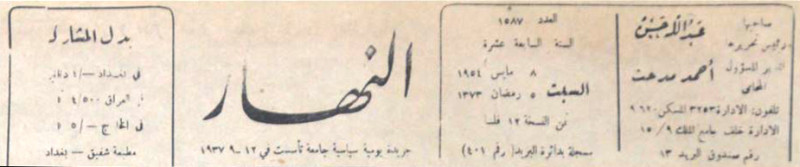 صاحبها
ورئيس تحريره
عبد الله حسن
المدير المسؤول
أحمد مدحت
المحامي
تلفون: الادارة ٣٢٥٣ المسكن ٩٦٢٠
الادارة خلف جامع الملك ١٥/٩
رقم صندوق البريد ١٣
العدد ١٥٨٧
السنة السابعة عشرة
السبت
٨ مايس ١٩٥٤
٥ رمضان ١٣٧٣
ثمن النسخة ١٢ فلسا
مسجلة بدائرة البريد (رقم ٤٠١)
النهار
جريدة يومية سياسية جامعة تأسست في ١٢-٩-١٩٣٧
بدل المشاركة
في بغداد
في العراق ٤/٥٠٠
في الخارج ٥/-
مطبعة شفيق - بغداد